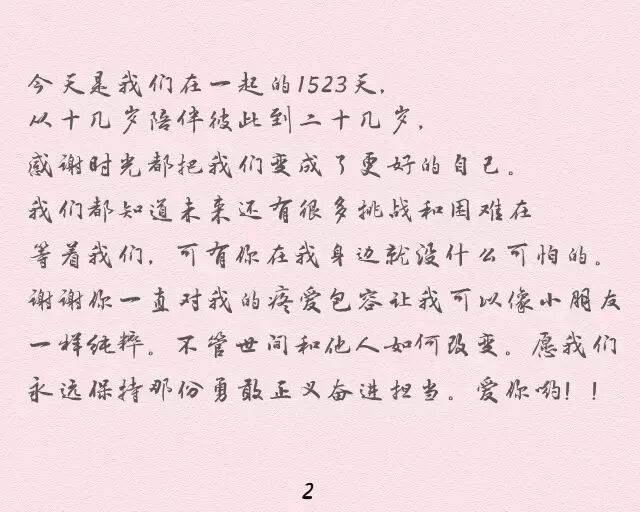 今天是我们在一起的1523天，
从十几岁陪伴彼此到二十几岁，
感谢时光都把我们变成了更好的自己。
我们都知道未来还有很多挑战和困难在
等着我们，可有你在我身边就没什么可怕的。
谢谢你一直对我的疼爱包容让我可以像小朋友
一样纯粹。不管世间和他人如何改变。愿我们
永远保持那份勇敢正义奋进担当。爱你哟！！
2